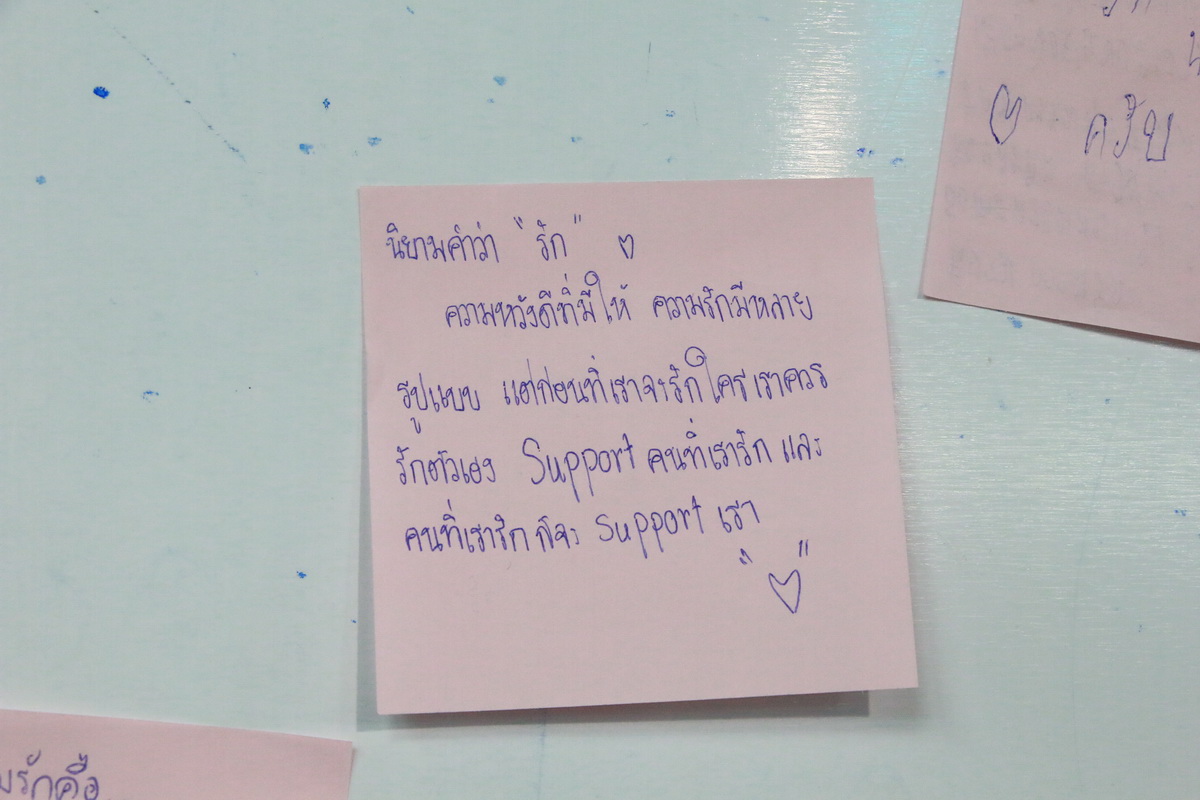 ครับ
นิยามคำว่า "รัก"
ความหวังดีที่มีให้ ความรักมีหลาย
รูปแบบ แต่ก่อนที่เราจะรักใครเราควร
รักตัวเอง Support คนที่เรารัก และ
คนที่เรารักก็จะ Support เรา
รักคือ